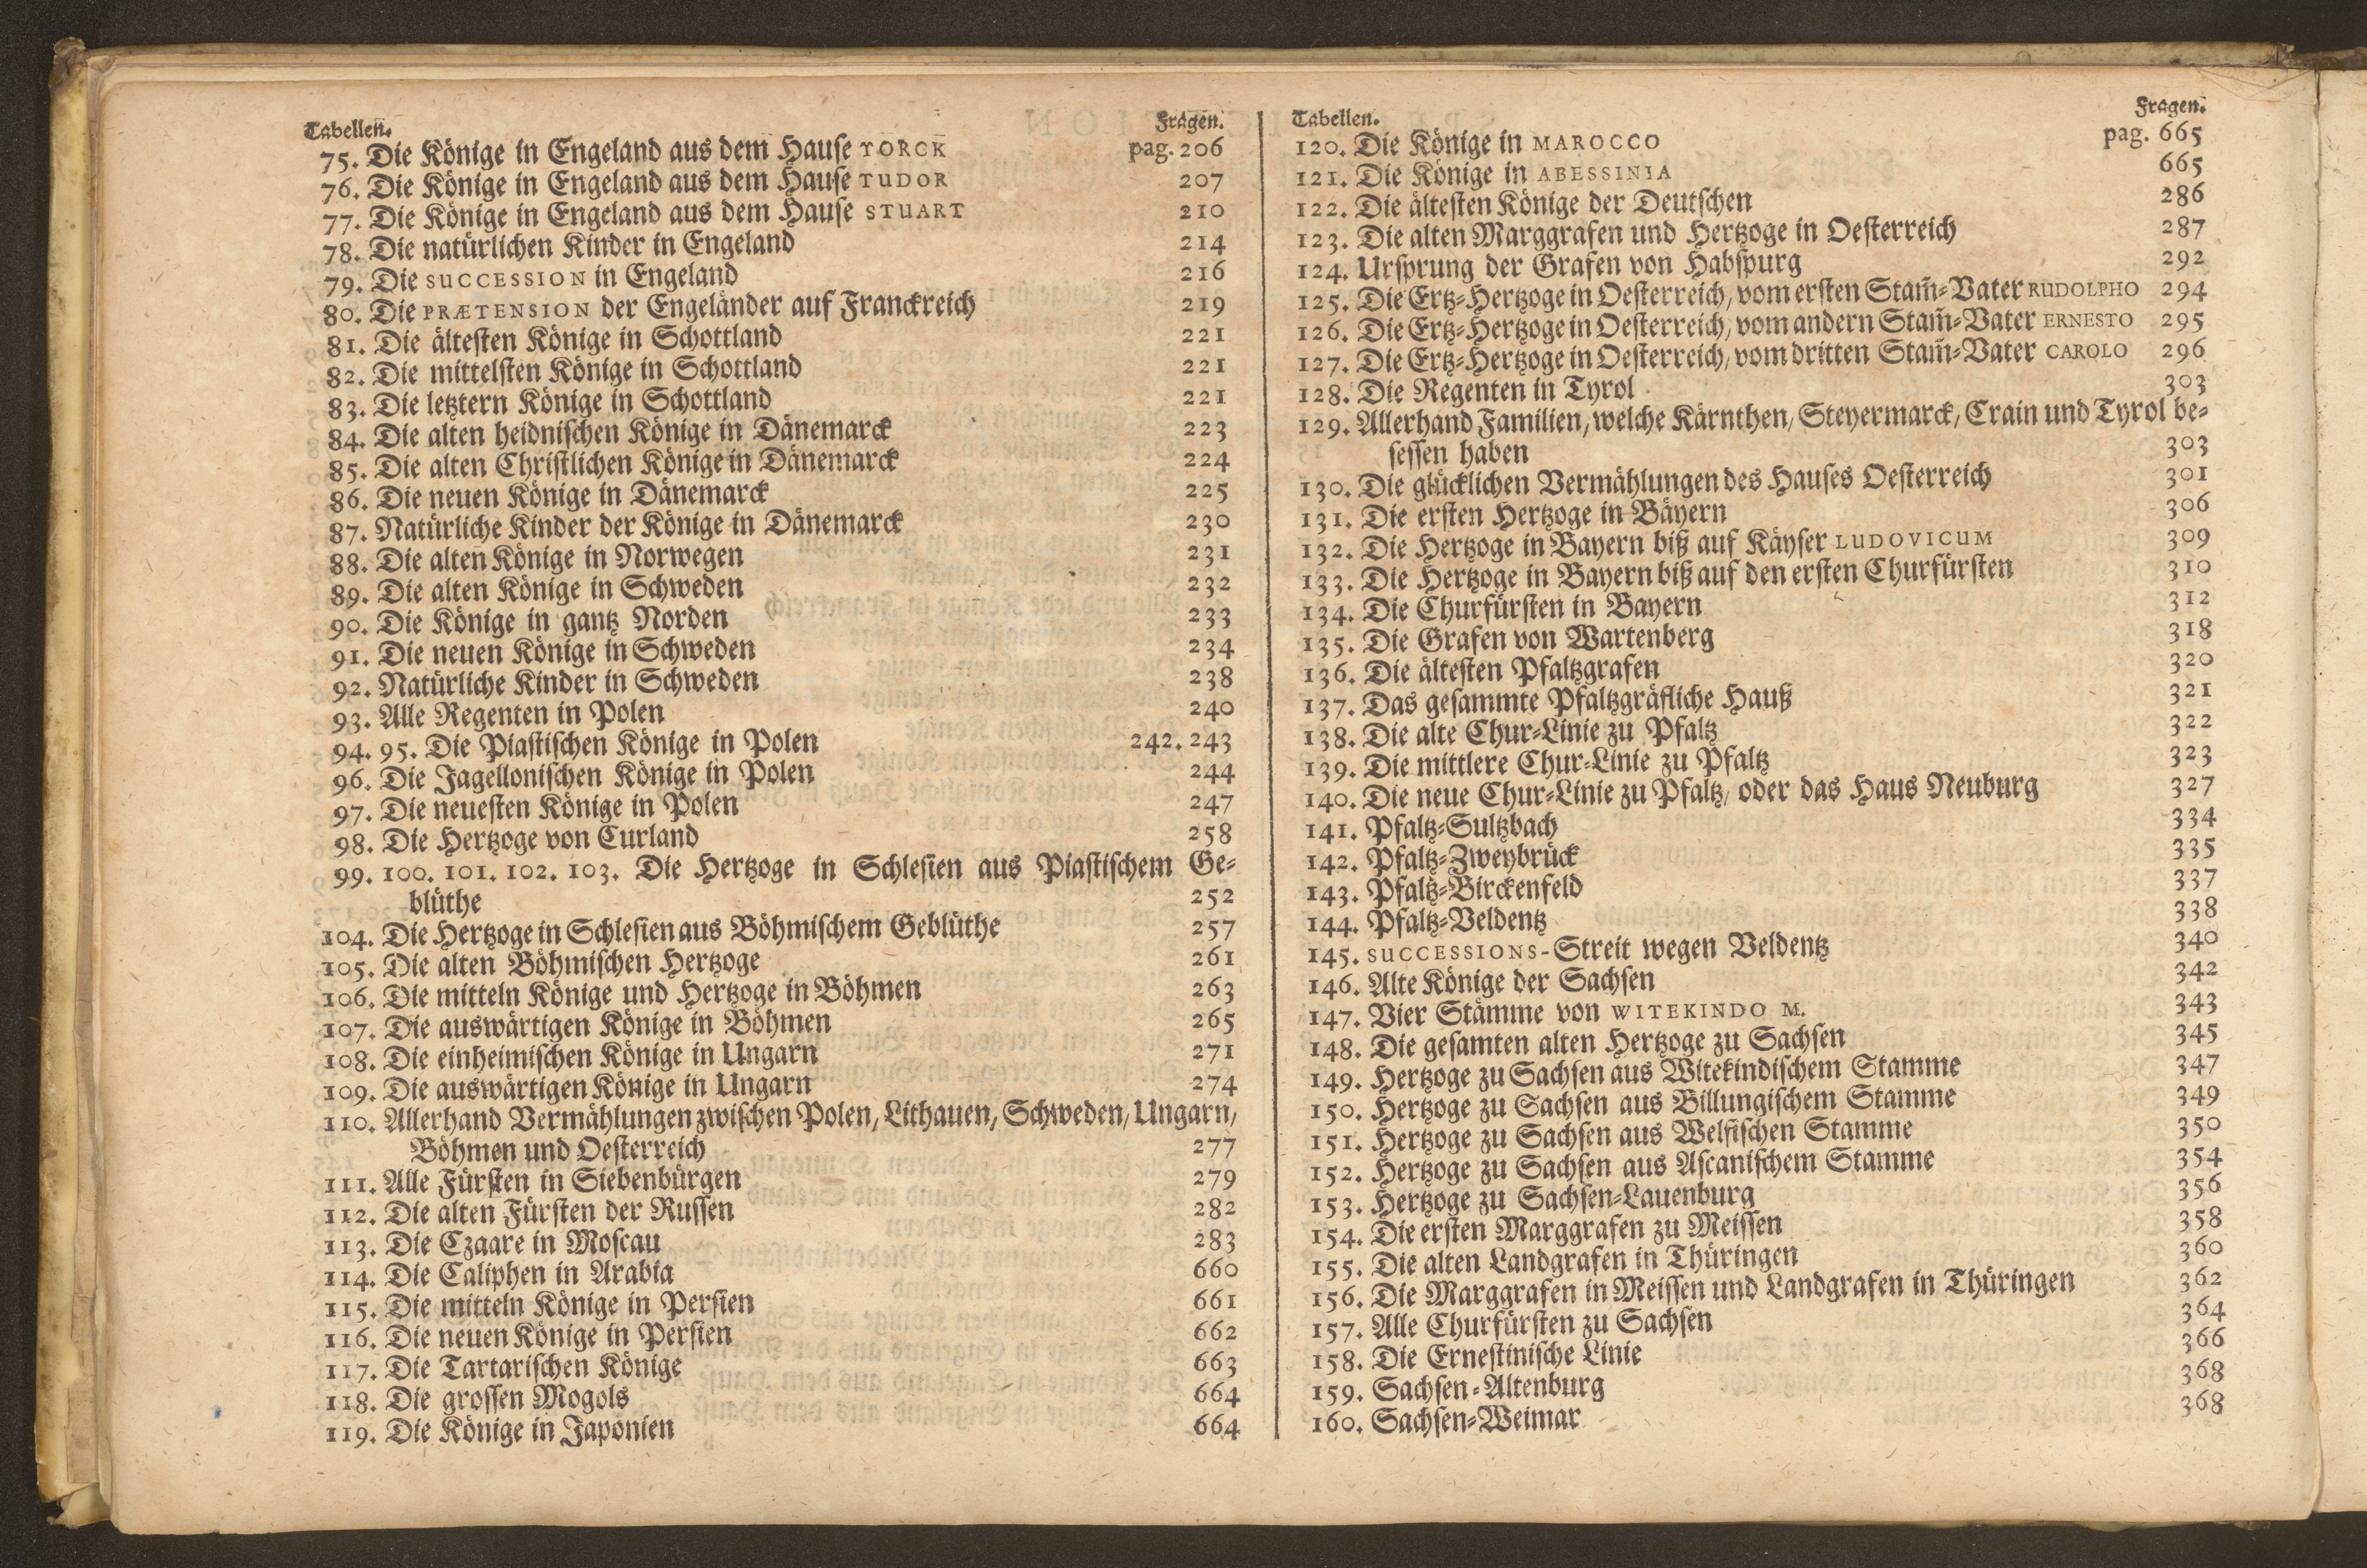 Tabellen. Fragen.
75. Die Könige in Engeland aus dem Hause YORCK pag. 206
76. Die Könige in Engeland aus dem Hause TUDOR 207
77. Die Könige in Engeland aus dem Hause STUART 210
78. Die natürlichen Kinder in Engeland 214
79. Die SUCCESSION in Engeland 216
80. Die PRÆTENSION der Engeländer auf Franckreich 219
81. Die ältesten Könige in Schottland 221
82. Die mittelsten Könige in Schottland 221
83. Die letztern Könige in Schottland 221
84. Die alten heidnischen Könige in Dänemarck 223
85. Die alten Christlichen Könige in Dänemarck 224
86. Die neuen Könige in Dänemarck 225
87. Natürliche Kinder der Könige in Dänemarck 230
88. Die alten Könige in Norwegen 231
89. Die alten Könige in Schweden 232
90. Die Könige in gantz Norden 233
91. Die neuen Könige in Schweden 234
92. Natürliche Kinder in Schweden 238
93. Alle Regenten in Polen 240
94. 95. Die Piastischen Könige in Polen 242. 243
96. Die Jagellonischen Könige in Polen 244
97. Die neuesten Könige in Polen 247
98. Die Hertzoge von Curland 258
99. 100. 101. 102. 103. Die Hertzoge in Schlesien aus Piastischem Ge-
blüthe 252
104. Die Hertzoge in Schlesien aus Böhmischem Geblüthe 257
105. Die alten Böhmischen Hertzoge 261
106. Die mitteln Könige und Hertzoge in Böhmen 263
107. Die auswärtigen Könige in Böhmen 265
108. Die einheimischen Könige in Ungarn 271
109. Die auswärtigen Könige in Ungarn 274
110. Allerhand Vermählungen zwischen Polen, Lithauen, Schweden, Ungarn,
Böhmen und Oesterreich 277
111. Alle Fürsten in Siebenbürgen 279
112. Die alten Fürsten der Russen 282
113. Die Czaare in Moscau 283
114. Die Caliphen in Arabia 660
115. Die mitteln Könige in Persien 661
116. Die neuen Könige in Persien 662
117. Die Tartarischen Könige 663
118. Die grossen Mogols 664
119. Die Könige in Japonien 664
Tabellen. Fragen.
120. Die Könige in MAROCCO pag. 665
121. Die Könige in ABESSINIA 665
122. Die ältesten Könige der Deutschen 286
123. Die alten Marggrafen und Hertzoge in Oesterreich 287
124. Ursprung der Grafen von Habspurg 292
125. Die Ertz-Hertzoge in Oesterreich, vom ersten Stam̃-Vater RUDOLPHO 294
126. Die Ertz-Hertzoge in Oesterreich, vom andern Stam̃-Vater ERNESTO 295
127. Die Ertz-Hertzoge in Oesterreich, vom dritten Stam̃-Vater CAROLO 296
128. Die Regenten in Tyrol 303
129. Allerhand Familien, welche Kärnthen, Steyermarck, Crain und Tyrol be-
sessen haben 303
130. Die glücklichen Vermählungen des Hauses Oesterreich 301
131. Die ersten Hertzoge in Bäyern 306
132. Die Hertzoge in Bayern biß auf Käyser LUDOVICUM 309
133. Die Hertzoge in Bayern biß auf den ersten Churfürsten 310
134. Die Churfürsten in Bayern 312
135. Die Grafen von Wartenberg 318
136. Die ältesten Pfaltzgrafen 320
137. Das gesammte Pfaltzgräfliche Hauß 321
138. Die alte Chur-Linie zu Pfaltz 322
139. Die mittlere Chur-Linie zu Pfaltz 323
140. Die neue Chur-Linie zu Pfaltz, oder das Haus Neuburg 327
141. Pfaltz-Sultzbach 334
142. Pfaltz-Zweybrück 335
143. Pfaltz-Birckenfeld 337
144. Pfaltz-Veldentz 338
145. SUCCESSIONS-Streit wegen Veldentz 340
146. Alte Könige der Sachsen 342
147. Vier Stämme von WITEKINDO M. 343
148. Die gesamten alten Hertzoge zu Sachsen 345
149. Hertzoge zu Sachsen aus Witekindischem Stamme 347
150. Hertzoge zu Sachsen aus Billungischem Stamme 349
151. Hertzoge zu Sachsen aus Welfischen Stamme 350
152. Hertzoge zu Sachsen aus Ascanischem Stamme 354
153. Hertzoge zu Sachsen-Lauenburg 356
154. Die ersten Marggrafen zu Meissen 358
155. Die alten Landgrafen in Thüringen 360
156. Die Marggrafen in Meissen und Landgrafen in Thüringen 362
157. Alle Churfürsten zu Sachsen 364
158. Die Ernestinische Linie 366
159. Sachsen-Altenburg 368
160. Sachsen-Weimar 368